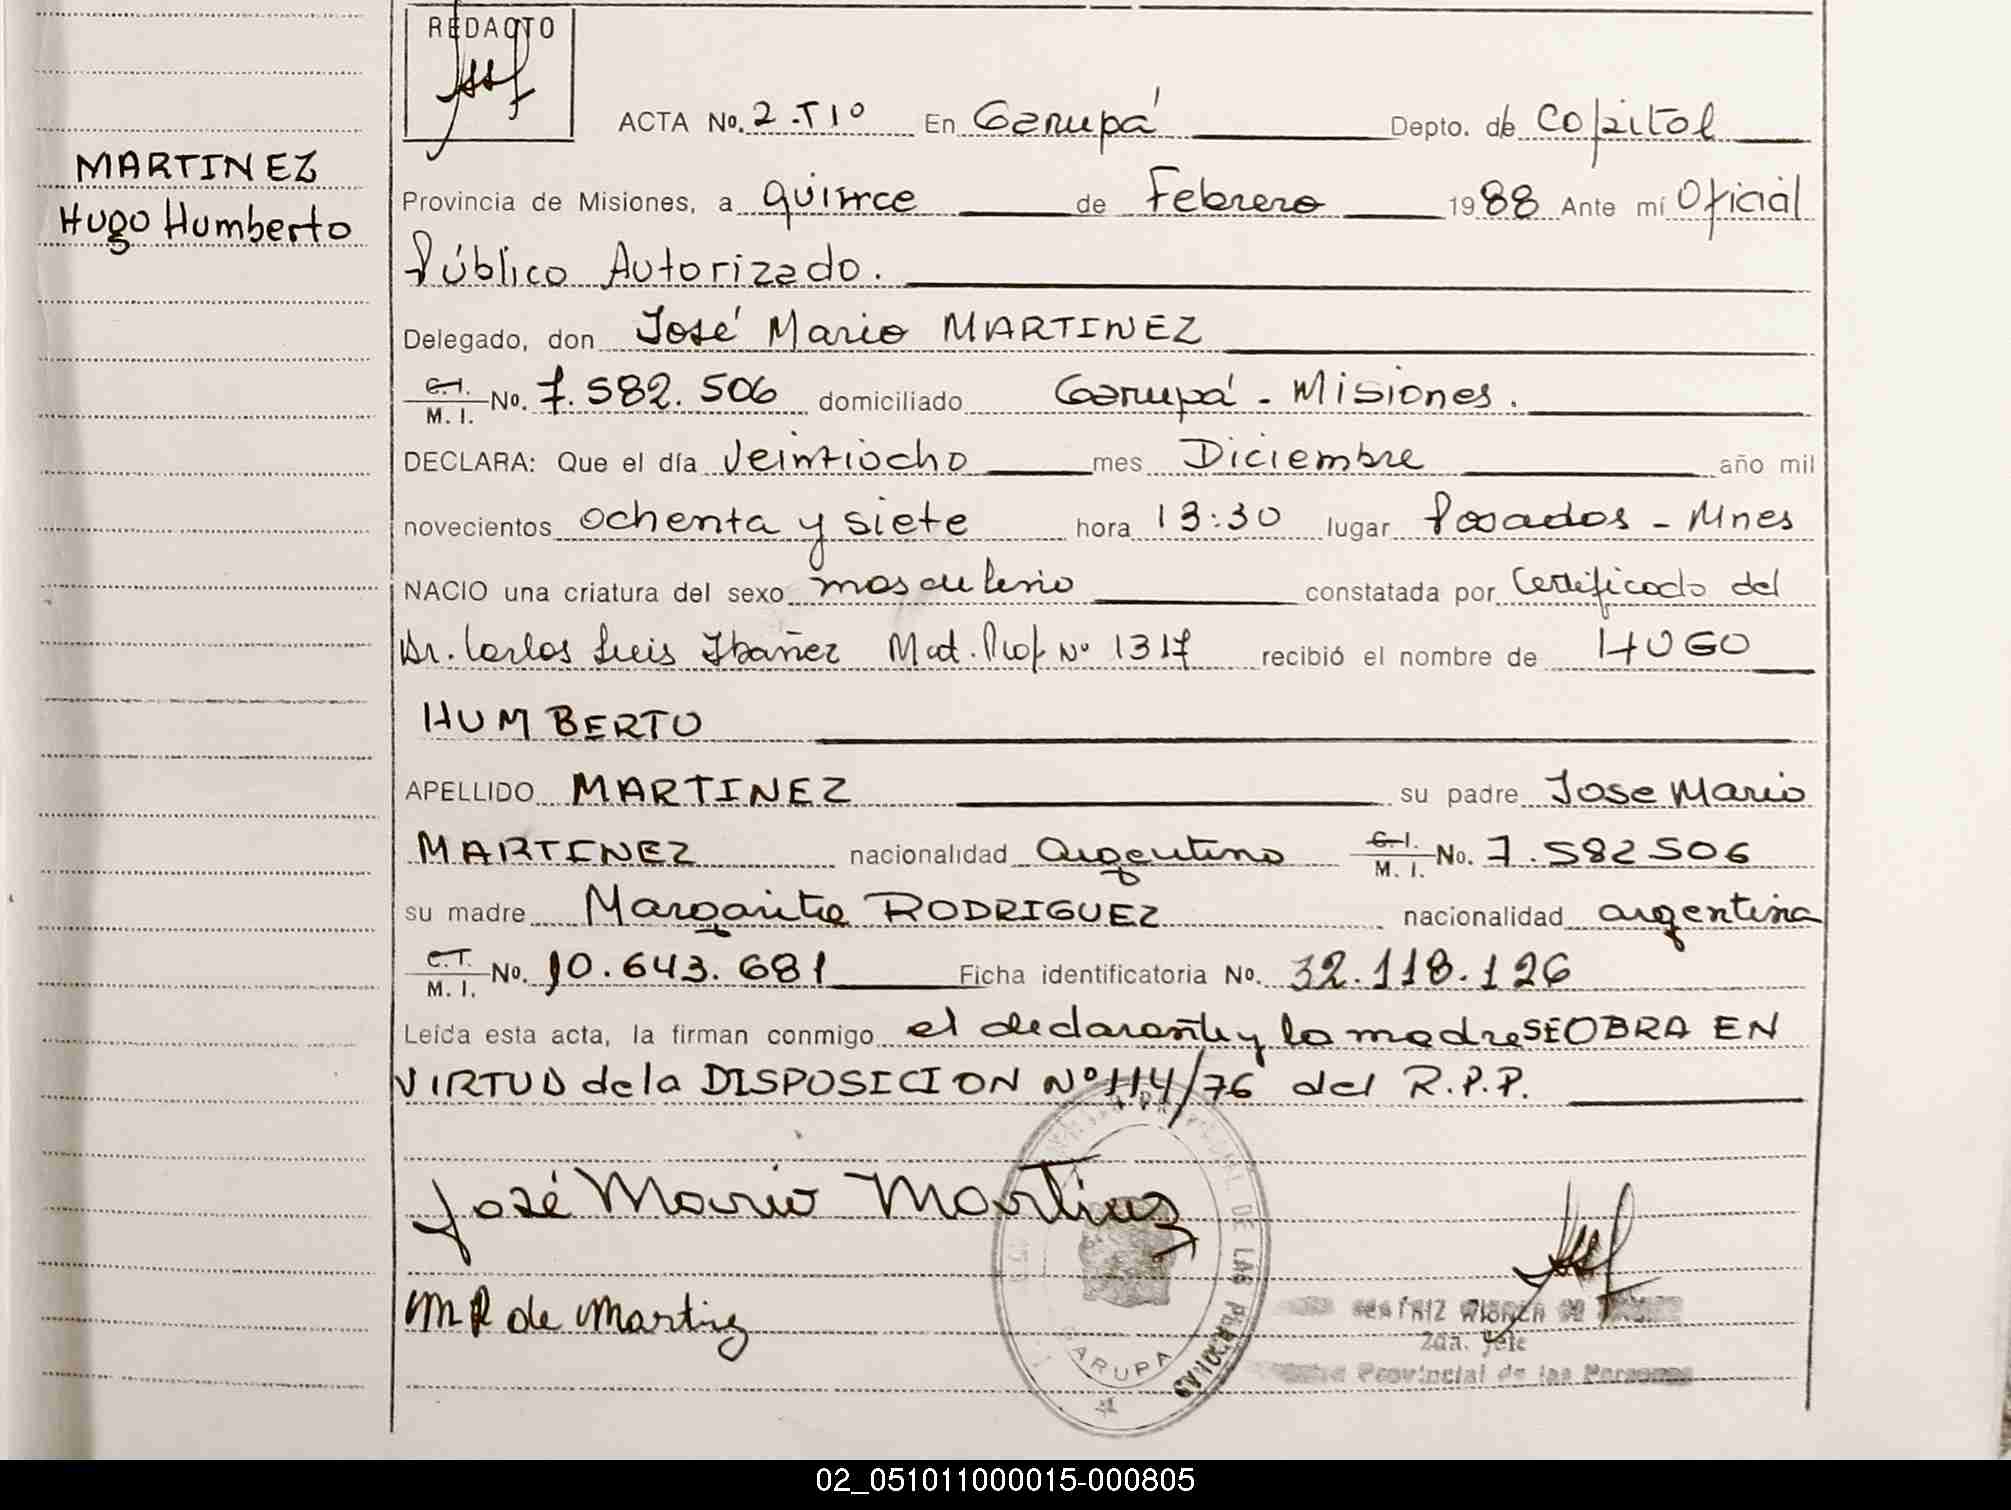 REDACTO
ACTA No. 2.T1º En Garupá Depto. de Capital
MARTINEZ
Hugo Humberto
Provincia de Misiones, a quince de Febrero 1988 Ante mí Oficial
Público Autorizado.
Delegado, don José Mario MARTINEZ
C.I. M. I. No. 7.582.506 domiciliado Garupá - Misiones.
DECLARA: Que el día Veintiocho mes Diciembre año mil
novecientos ochenta y siete hora 13:30 lugar Posadas - Mnes
NACIO una criatura del sexo masculino constatada por Certificado del
Dr. Carlos Luis Ibañez Mat. Prof Nº 1317 recibió el nombre de HUGO
HUMBERTO
APELLIDO MARTINEZ su padre Jose Mario
MARTINEZ nacionalidad argentino C.I. M. I. No. 7.582506
su madre Margarita RODRIGUEZ nacionalidad argentina
C.I. M. I. No. 10.643.681 Ficha identificatoria No. 32.118.126
Leída esta acta, la firman conmigo el declarante y la madre SEOBRA EN
VIRTUD de la DISPOSICION Nº 114/76 del R.P.P.
José Mario Martinez
M R de Martinez
PROVINCIAL DE LAS PERSONAS
GARUPA
BEATRIZ
2da. Jefe
Provincial de las Personas
02_051011000015-000805